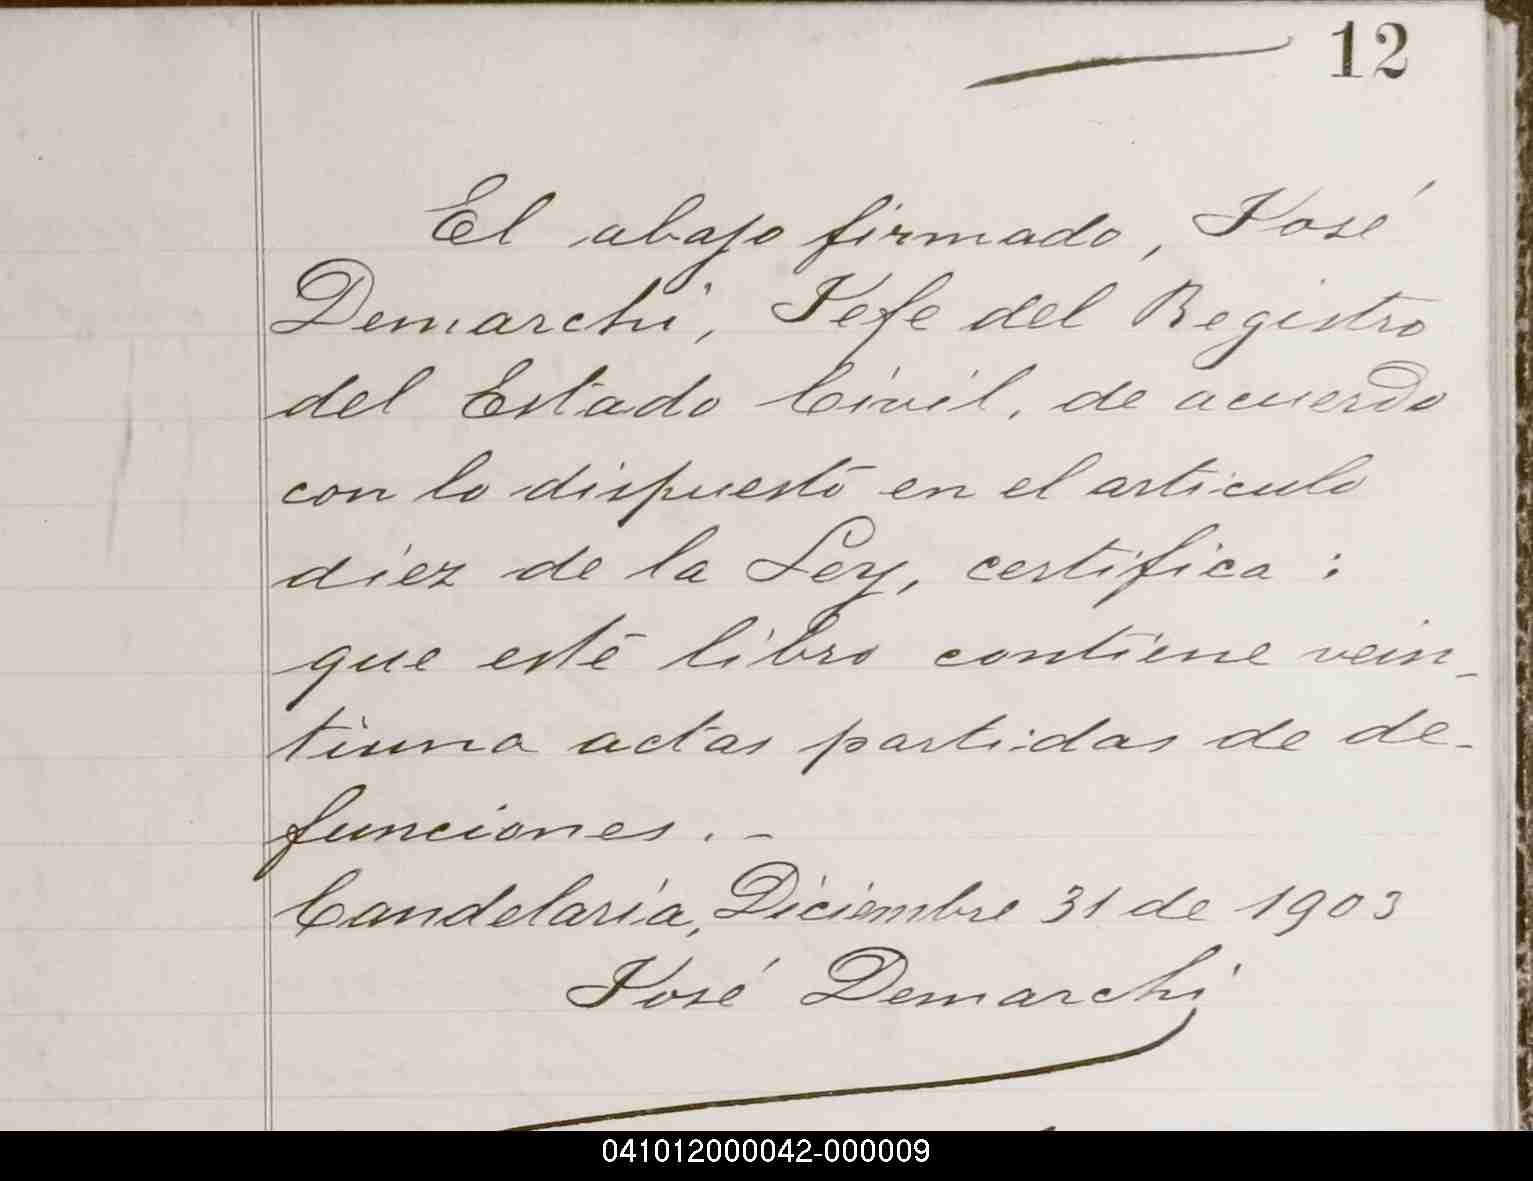 12
El abajo firmado, José
Demarchi, Jefe del Registro
del Estado Civil, de acuerdo
con lo dispuesto en el articulo
diez de la Ley, certifica :
que este libro contiene vein-
tiuna actas partidas de de-
funciones. -
Candelaria, Diciembre 31 de 1903
José Demarchi
041012000042-000009